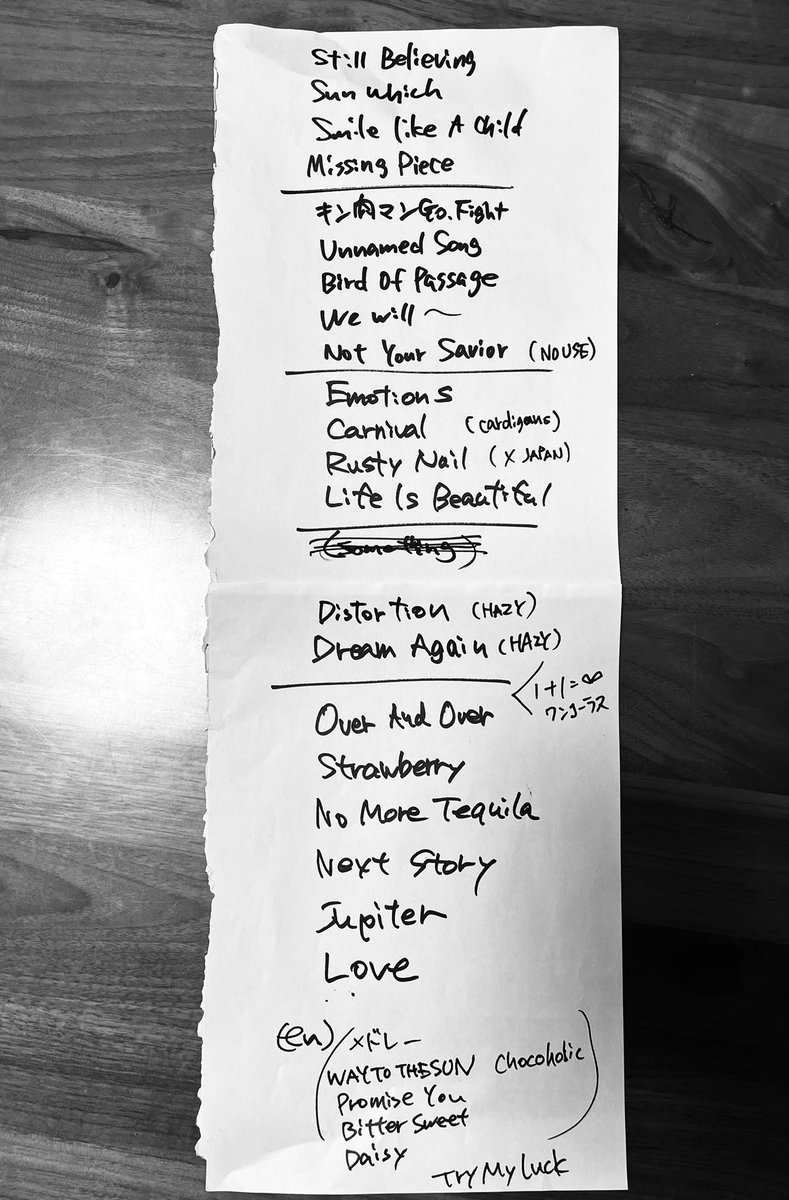 Still Believing
Sun which
Smile like A child
Missing Piece
キン肉マンGo.Fight
Unnamed Song
Bird Of Passage
We will〜
Not Your Savior (NO USE)
Emotions
Carnival (cardigans)
Rusty Nail (X JAPAN)
Life Is Beautiful
(something)
Distortion (HAZY)
Dream Again (HAZY)
1+1=∞
ワンコーラス
Over And Over
Strawberry
No More Tequila
Next Story
Jupiter
Love
(en) メドレー
WAY TO THE SUN Chocoholic
Promise You
Bitter Sweet
Daisy
Try My Luck